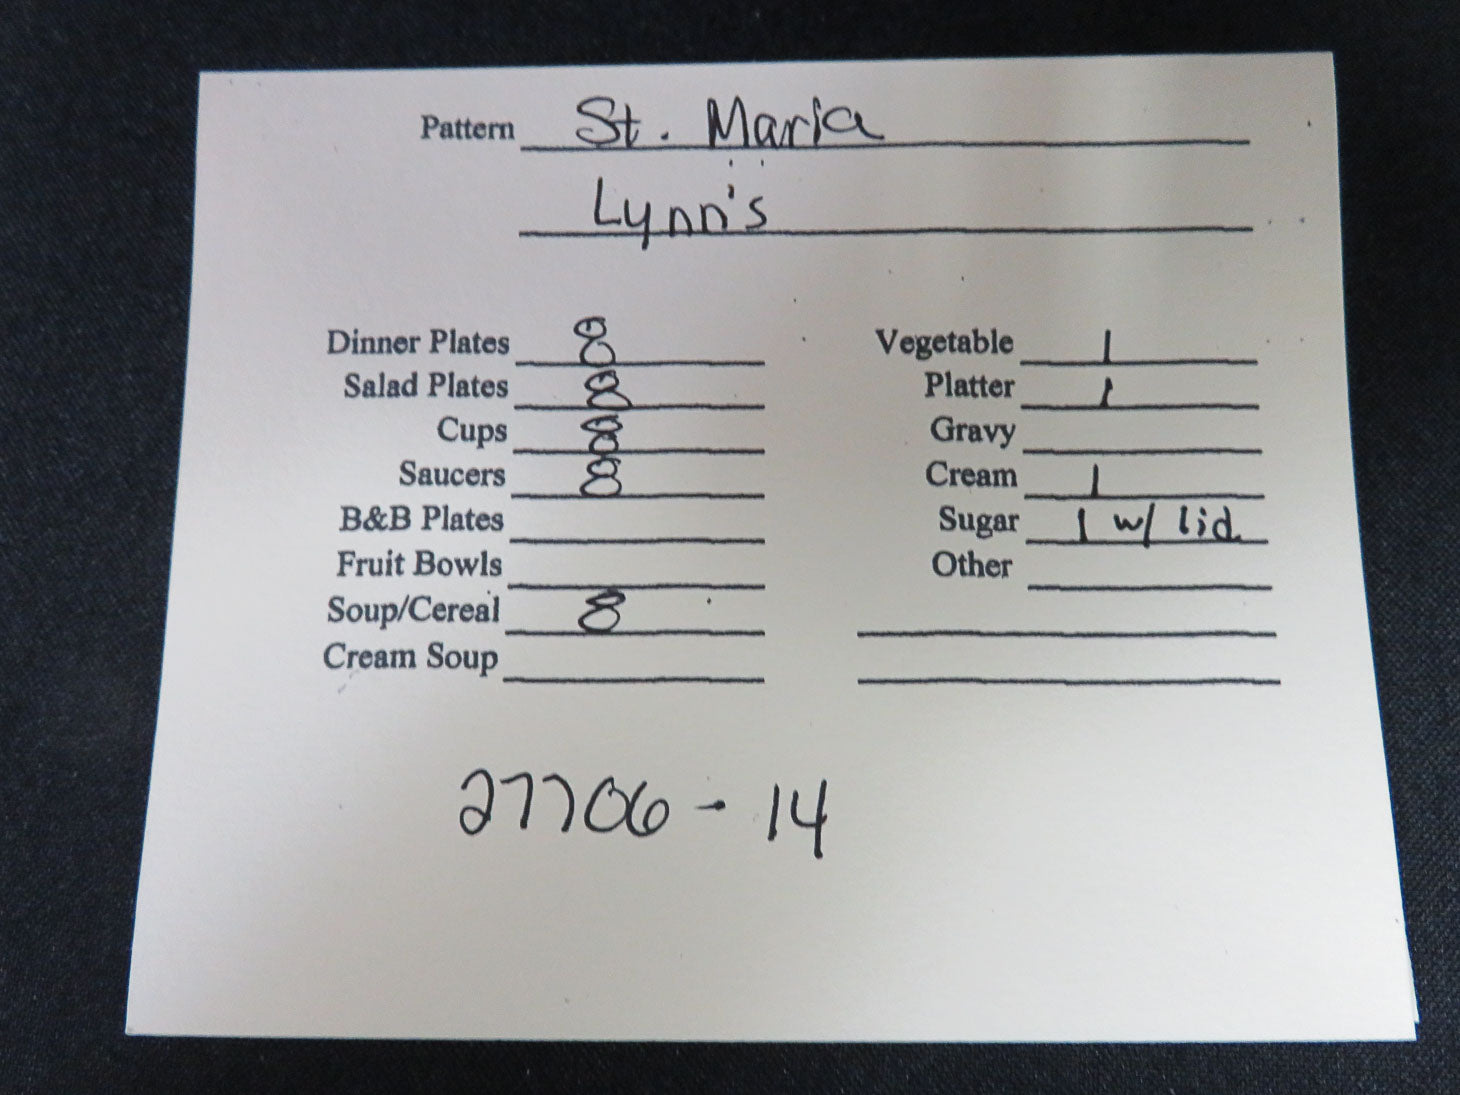 Pattern St. Maria
Lynn's
Dinner Plates 8
Salad Plates 8
Cups 8
Saucers 8
B&B Plates
Fruit Bowls
Soup/Cereal 8
Cream Soup
Vegetable 1
Platter 1
Gravy
Cream 1
Sugar 1 w/ lid
Other
27706 - 14